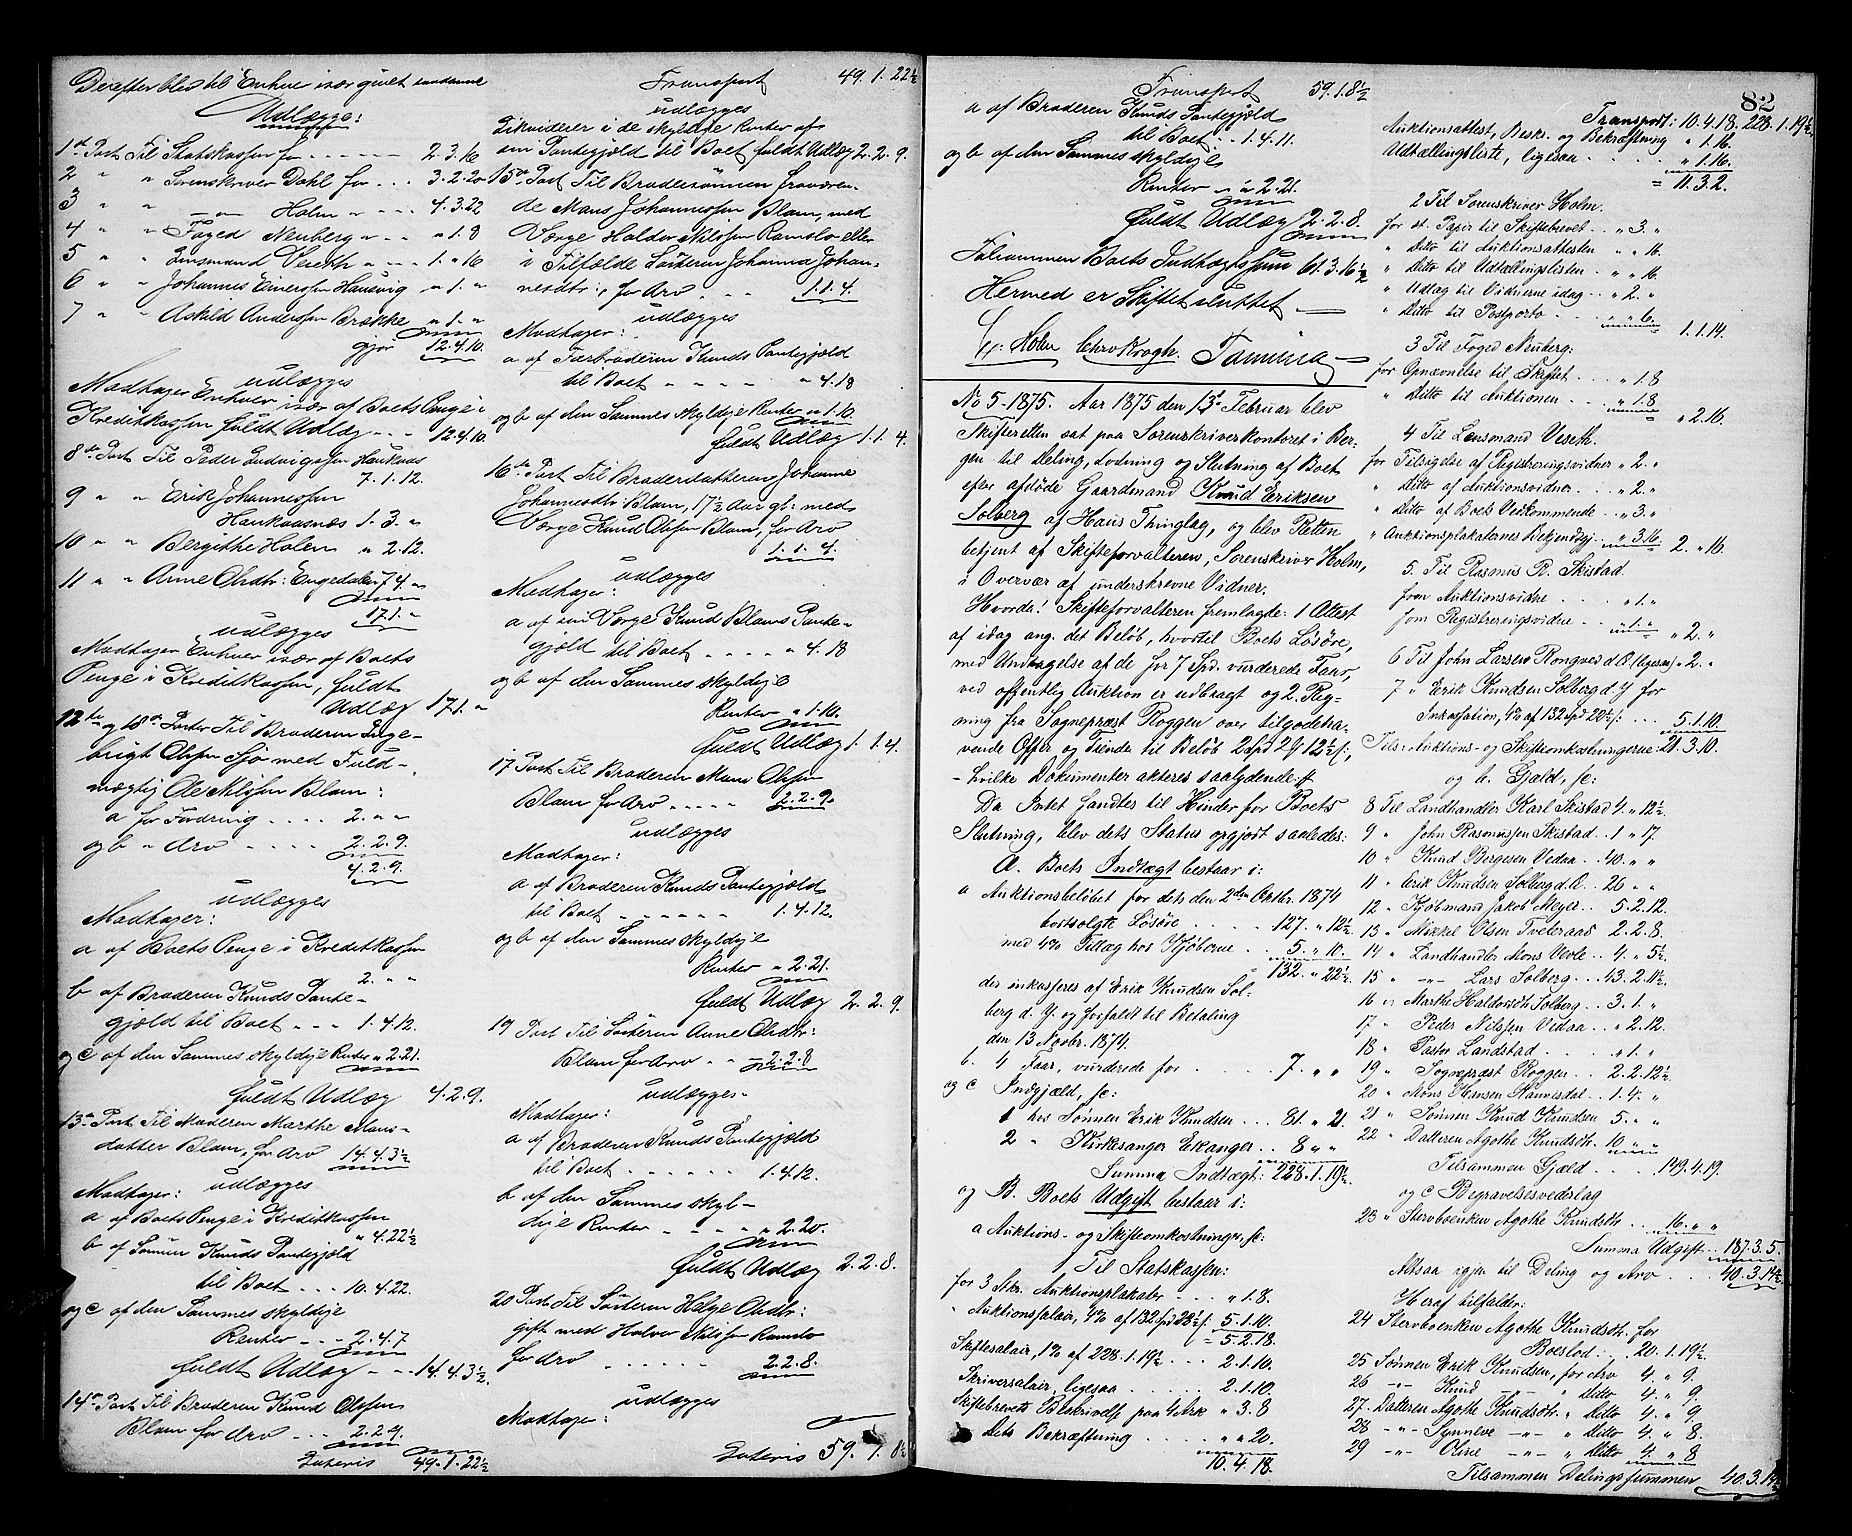 Derefter blev til Enhver især gjort saadanne
Udlægge:
1ste Post Til Statskassen for - - - - - 2.3.16
2 " " Sorenskriver Dahl for - - - 3.2.20
3 " " —"— Holm " - - - 4.3.22
4 " " Foged Neuberg " - - " 1.8
5 " " Lensmand Veseth " - - - 1. " 16
6 " " Johannes Einersen Hausvig " 1. "
7 " " Askild Andersen Brække " 1. "
gjør 12.4.10.
udlægges
Modtager Enhver især af Boets Penge i
Kreditkassen fuldt Udlæg - - - 12.4.10.
8de Post Til Peder Ludvigsen Haukaas
7.1.12.
9 " " Erik Johannessen
Haukaasnæs 1.3. "
10 " " Bergithe Holen " 2.12.
11 " " Anne Olsdtr: Engedalen 7.4 "
17.1. "
udlægges
Modtager Enhver især af Boets
Penge i Kreditkassen, fuldt
Udlæg 17.1. "
12te og 18de Poster Til Broderen Inge-
brigt Olsen Sjø med Fuld-
mægtig Ole Nilsen Blam:
a for Fordring - - - - 2. " "
og b " Arv - - - - 2.2.9.
4.2.9.
udlægges
Modtager:
a af Boets Penge i Kreditkassen
2. " "
b af Broderen Knuds Pante-
gjæld til Boet - - - 1.4.12.
og c af den Sammes skyldige Renter " 2.21.
fuldt Udlæg 4.2.9.
13de Post Til Moderen Marthe Mons-
datter Blam, for Arv 14.4.3½
udlægges
Modtager:
a af Boets Penge i Kreditkassen
" 4.22½
b af Sønnen Knuds Pantegjæld
til Boet - - - 10.4.22.
og c af den Sammes skyldige
Renter - - - 2.4.7
fuldt Udlæg - - 14.4.3½.
14de Post Til Broderen Knud Olsen
Blam for Arv - - - 2.2.9.
Lateris 49.1.22½
Transport 49.1.22½
udlægges
Likviderer i de skyldige Renter af
sin Pantegjæld til Boet fuldt Udlæg 2.2.9.
15de Post Til Brodersønnen fraværen-
de Mons Johannessen Blam, med
Værge Haldor Nilssen Ramslo eller
i Tilfælde Søsteren Johanna Johan-
nesdtr:, for Arv - - 1.1.4.
udlægges
Modtager:
a af Farbroderen Knuds Pantegjæld
til Boet - - - - - " 4.18
og b af den Sammes skyldige Renter " 1.10.
fuldt Udlæg 1.1.4.
16de Post Til Broderdatteren Johanne
Johannesdtr: Blam, 17½ Aar gl: med
Værge Knud Olsen Blam, for Arv
1.1.4.
udlægges
Modtager:
a af sin Værge Knud Blams Pante-
gjæld til Boet - - - - " 4.18
og b af den Sammes skyldige
Renter " 1.10.
fuldt Udlæg 1.1.4.
17 Post Til Broderen Mons Olsen
Blam for Arv - - - - 2.2.9.
udlægges
Modtager:
a af Broderen Knuds Pantegjæld
til Boet - - - - - - 1.4.12.
og b af den Sammes skyldige
Renter " 2.21.
fuldt Udlæg 2.2.9.
19 Post Til Søsteren Anne Olsdtr:
Blam for Arv - - 2.2.8
udlægges
Modtager:
a af Broderen Knuds Pantegjæld
til Boet - - - - - - 1.4.12.
b af den Sammes skyl-
dige Renter - - - - " 2.20.
fuldt Udlæg 2.2.8.
20 Post Til Søsteren Helge Olsdtr:
gift med Halvor Nilssen Ramslo
for Arv - - - - - 2.2.8.
udlægges
Modtager:
Lateris 59.1.8½
82
Transport 59.1.8½
a af Broderen Knuds Pantegjæld
til Boet - - - 1.4.11.
og b af den Sammes skyldige
Renter - " 2.21.
fuldt Udlæg 2.2.8.
Tilsammen Boets Indtægtssum 61.3.16½
Hermed er Skiftet sluttet.—
Holm Chr. Krogh.
No 5-1875. Aar 1875 den 13de Februar blev
Skifteretten sat paa Sorenskriverkontoret i Ber-
gen til Deling, Lodning og Slutning af Boet
efter afdøde Gaardmand Knud Eriksen
Solberg af Haus Thinglag, og blev Retten
betjent af Skifteforvalteren, Sorenskriver Holm,
i Overvær af underskrevne Vidner.
Hvorda! Skifteforvalteren fremlagde: 1 Attest
af idag ang. det Beløb, hvortil Boets Løsøre,
med Undtagelse af de for 7 Spd. vurderede Faar,
ved offentlig Auktion er udbragt og 2. Reg-
ning fra Sogneprest Roggen over tilgodeha-
vende Offer og Tiende til Beløb 2 Spd 2 ₰ 12½ ſ;
- hvilke Dokumenter akteres saalydende: #
Da Intet fandtes til Hinder for Boets
Slutning, blev dets Status opgjort saaledes:
A. Boets Indtægt bestaar i:
a Auktionsbeløbet for dets den 2den Oktbr. 1874
bortsolgte Løsøre - - - - 127. " 12½
med 4% Tillæg hos Kjøberne - - 5. " 10.
132. " 22½
der inkasseres af Erik Knudsen Sol-
berg d. Y. og forfaldt til Betaling
den 13 Novbr. 1874.
b. 4 Faar, vurderede for - - - - 7. " "
og c Indgjæld, sc:
1 hos Sønnen Erik Knudsen - - - 81. " 21.
2 " Kirkesanger Ekanger - - 8 " "
Summa Indtægt: 228.1.19½.
og B. Boets Udgift bestaar i:
a Auktions- og Skifteomkostninger, sc:
1 Til Statskassen:
for 3 Stkr. Auktionsplakater - - - " 1.8.
" Auktionssalair, 4% af 132 Spd 22½ ſ: 5.1.10.
= 5.2.18.
Skiftesalair, 1% af 228.1.19½ - - - 2.1.10.
Skriversalair, ligesaa - - - - 2.1.10.
Skiftebrevets Beskrivelse paa 4 Ark " 3.8
Dets Bekræftning - - - - " " 20.
10.4.18.
Transport: 10.4.18. 228.1.19½
Auktionsattest, Beskr. og Bekræftning " 1.16.
Udtællingsliste, ligesaa - - - - " 1.16.
= 11.3.2.
2 Til Sorenskriver Holm.
for st. Papir til Skiftebrevet - - " 3. "
" Ditto til Auktionsattesten - - " " 16.
" Ditto til Udtællingslisten - - " " 16
" Udlæg til Vidnerne idag - - " 2. "
" Ditto til Postporto - - - - " " 6. 1.1.14.
3 Til Foged Neuberg:
for Opnævnelse til Skiftet - - - " 1.8
" Ditto til Auktionen - - - " 1.8 " 2.16.
4 Til Lensmand Veseth.
for Tilsigelse af Registreringsvidner " 2. "
" Ditto af Auktionsvidner - - - " 2. "
" Ditto af Boets Vedkommende - - " 3. "
" Auktionsplakaternes Bekjendtgj. " 3.16. 2. " 16.
5. Til Rasmus R. Skistad.
som Auktionsvidne - - - " 1. "
som Registreringsvidne - - " 1. " " 2. "
6 Til John Larsen Rongved d. Æ. (ligesaa) " 2. "
7 " Erik Knudsen Solberg d. Y for
Inkassation, 4% af 132 Spd 22½ ſ: - - - 5.1.10.
Tils: Auktions- og Skifteomkostningerne: 21.3.10.
og b. Gjæld, sc:
8 Til Landhandler Karl Skistad 4. " 12½.
9 " John Rasmussen Skistad - - 1 " 17.
10 " Knud Bergesen Vedaa - - 40. " "
11 " Erik Knudsen Solberg d. Æ. - 26 " "
12 " Kjøbmand Jakob Meyer - - 5.2.12.
13 " Mikkel Olsen Tveteraas 2.2.8.
14 " Landhandler Mons Vevle - - 4. " 5½.
15 " —"— Lars Solberg - - - 43.2.11½
16 " Marthe Haldorsdtr: Solberg - - 3.1. "
17 " Peder Nilssen Vedaa - - - " 2.12.
18 " Pastor Landstad - - - - " 1. "
19 " Sogneprest Roggen - - - 2.2.12½.
20 " Mons Hansen Mannisdal - - 1.4. "
21 " Sønnen Knud Knudsen - - 5. " "
22 " Datteren Agathe Knudsdtr. 10 " "
Tilsammen Gjæld - - - - 149.4.19.
og c Begravelsesvederlag
23 " Stervboenken Agathe Knudsdtr. - - 16. " "
Summa Udgift - - 187.3.5.
Altsaa igjen til Deling og Arv - - - 40.3.14½
Heraf tilfalder:
24 Stervboenken Agathe Knudsdtr. for
Boeslod: - - 20.1.19½.
25 Sønnen Erik Knudsen, for Arv 4. " 9.
26 —"— Knud —"— " Ditto 4. " 9.
27. Datteren Agathe Knudsdtr. " Ditto 4. " 9
28 —"— Synneve —"— " Ditto 4. " 8
29 —"— Oline —"— " Ditto 4. " 8
Tilsammen Delingssummen 40.3.14½